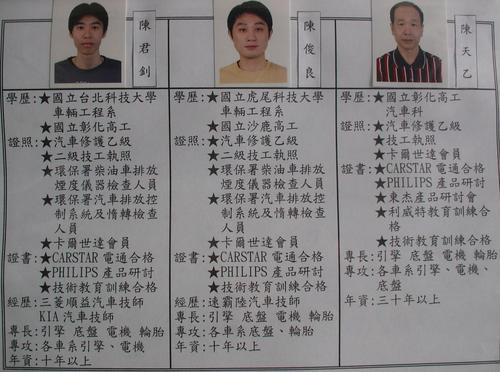 陳君釗
學歷:★國立台北科技大學
車輛工程系
★國立彰化高工
證照:★汽車修護乙級
★二級技工執照
★環保署柴油車排放
煙度儀器檢查人員
★環保署汽車排放控
制系統及惰轉檢查
人員
★卡爾世達會員
證書:★CARSTAR電通合格
★PHILIPS產品研討
★技術教育訓練合格
經歷:三菱順益汽車技師
KIA汽車技師
專長:引擎 底盤 電機 輪胎
專攻:各車系引擎、電機
年資:十年以上
陳俊良
學歷:★國立虎尾科技大學
車輛工程系
★國立沙鹿高工
證照:★汽車修護乙級
★二級技工執照
★環保署柴油車排放
煙度儀器檢查人員
★環保署汽車排放控
制系統及惰轉檢查
人員
★卡爾世達會員
證書:★CARSTAR電通合格
★PHILIPS產品研討
★技術教育訓練合格
經歷:速霸陸汽車技師
專長:引擎 底盤 電機 輪胎
專攻:各車系底盤、輪胎
年資:十年以上
陳天乙
學歷:★國立彰化高工
汽車科
證照:★汽車修護乙級
★技工執照
★卡爾世達會員
證書:★CARSTAR電通合格
★PHILIPS產品研討
★東杰產品研討會
★利威特教育訓練合
格
★技術教育訓練合格
專長:引擎 底盤 電機 輪胎
專攻:各車系引擎、電機、
底盤
年資:三十年以上